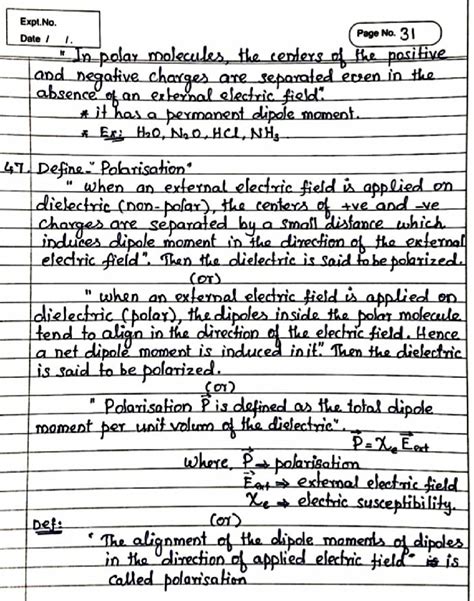 Expt.No.
Date / /.
Page No. 31
" In polar molecules, the centers of the positive
and negative charges are separated even in the
absence of an external electric field".
* it has a permanent dipole moment.
* Ex: H₂O, N₂O, HCl, NH₃
47. Define - "Polarisation"
" when an external electric field is applied on
dielectric (non-polar), the centers of +ve and -ve
charges are separated by a small distance which
induces dipole moment in the direction of the external
electric field". Then the dielectric is said to be polarized.
(or)
" when an external electric field is applied on
dielectric (polar), the dipoles inside the polar molecule
tend to align in the direction of the electric field. Hence
a net dipole moment is induced in it." Then the dielectric
is said to be polarized.
(or)
" Polarisation P⃗ is defined as the total dipole
moment per unit volum of the dielectric".
P⃗ = χₑ E⃗ext
where, P⃗ → polarisation
E⃗ext ⇒ external electric field
χₑ ⇒ electric susceptibility.
(or)
Def:
" The alignment of the dipole moments of dipoles
in the direction of applied electric field" is
called polarisation